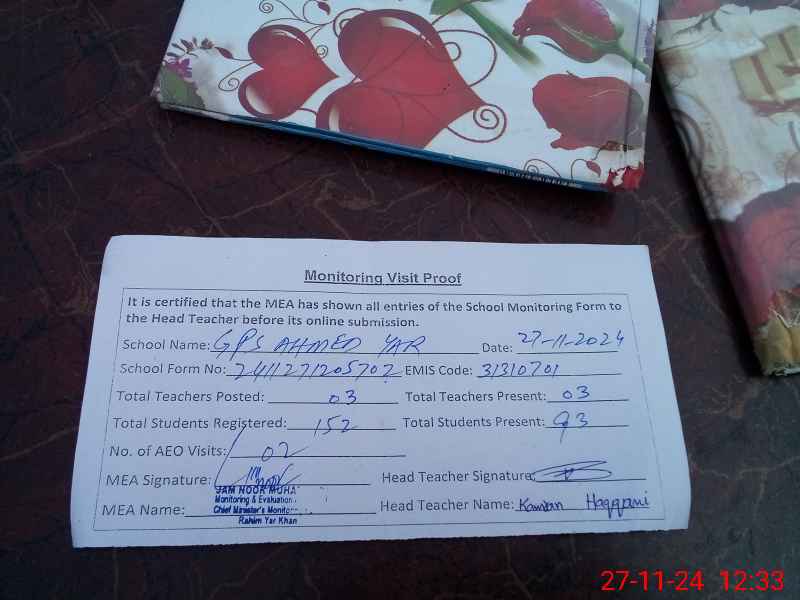 Monitoring Visit Proof
It is certified that the MEA has shown all entries of the School Monitoring Form to
the Head Teacher before its online submission.
School Name: GPS AHMED YAR Date: 27-11-2024
School Form No: 2411271205702 EMIS Code: 31310701
Total Teachers Posted: 03 Total Teachers Present: 03
Total Students Registered: 152 Total Students Present: 93
No. of AEO Visits: 02
MEA Signature: Head Teacher Signature:
JAM NOOR MUHA
Monitoring & Evaluation
MEA Name: Chief Minister's Monitor Head Teacher Name: Kamran Haqqani
Rahim Yar Khan
27-11-24 12:33